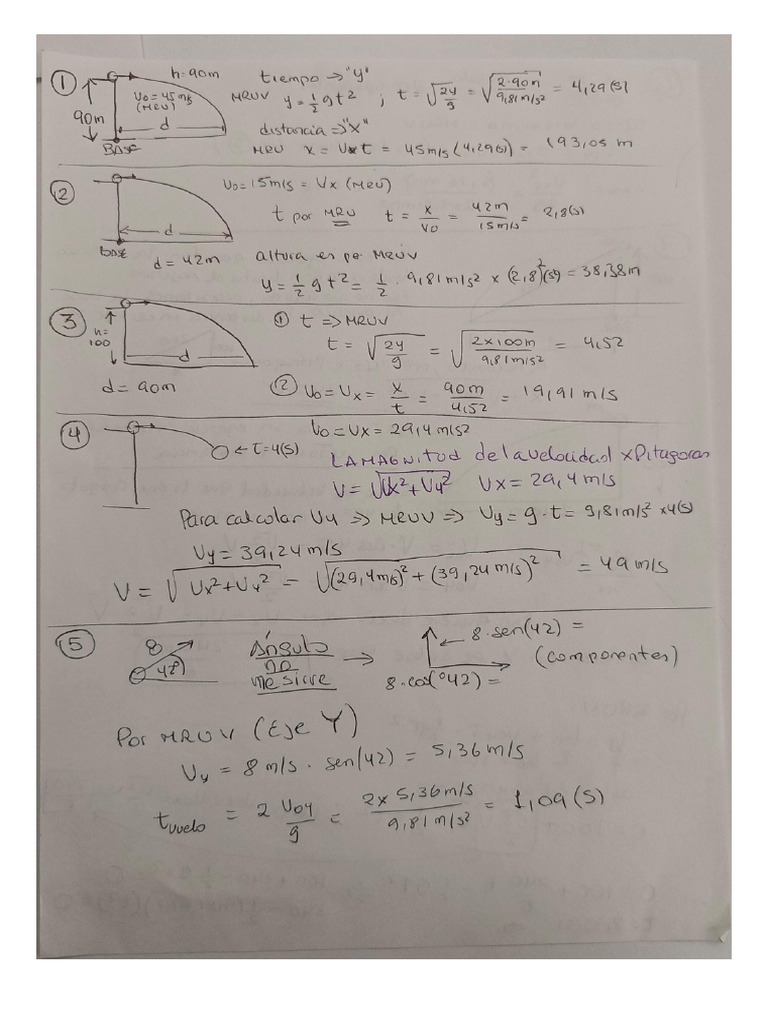 ① h=90m tiempo → "y"
90m V0 = 45m/s (MRU) d BASE
MRUV y = 1/2 gt² ; t = √(2y/g) = √(2·90m/9,81m/s²) = 4,29(s)
distancia => "X"
MRU x = Vx t = 45m/s (4,29(s)) = 193,05 m
② V0 = 15m/s = Vx (MRU)
d BASE d = 42m
t por MRU t = x/V0 = 42m/15m/s = 2,8(s)
altura es por MRUV
y = 1/2 g t² = 1/2 · 9,81m/s² × (2,8)²(s) = 38,38m
③ h= 100 d
d = 90m
① t => MRUV
t = √(2y/g) = √(2x100m/9,81m/s²) = 4,52
② V0 = Vx = x/t = 90m/4,52 = 19,91 m/s
④ ← t=4(s) V0 = Vx = 29,4m/s²
LA MAGNITUD de la velocidad x Pitagoras
V = √(Vx²+Vy²) Vx = 29,4 m/s
Para calcular Vy => MRUV => Vy = g·t = 9,81m/s² x4(s)
Vy = 39,24 m/s
V = √(Vx²+Vy²) = √((29,4m/s)² + (39,24 m/s)²) = 49 m/s
⑤ 8 42° Ángulo no me sirve → ← 8·sen(42) =
(componentes)
8·cos(°42) =
Por MRUV (Eje Y)
Vy = 8 m/s · sen(42) = 5,36 m/s
tvuelo = 2 V0y/g = 2x 5,36m/s/9,81 m/s² = 1,09 (s)